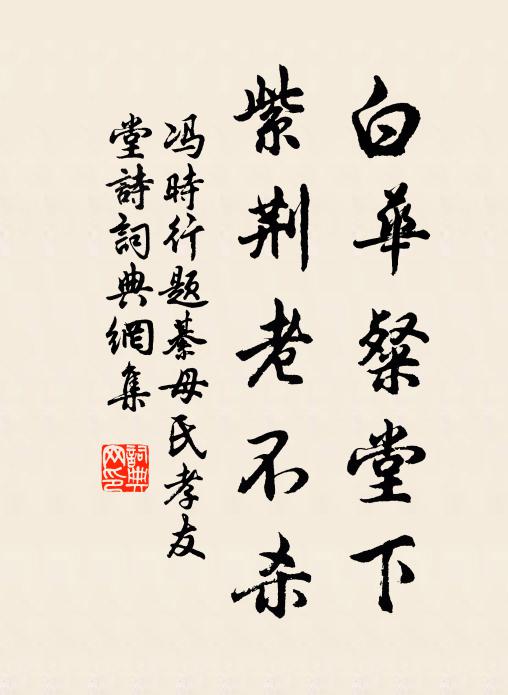 白華粲堂下
紫荆老不杀
冯時行题綦母氏孝友
堂詩詞典網集
詞典
网印